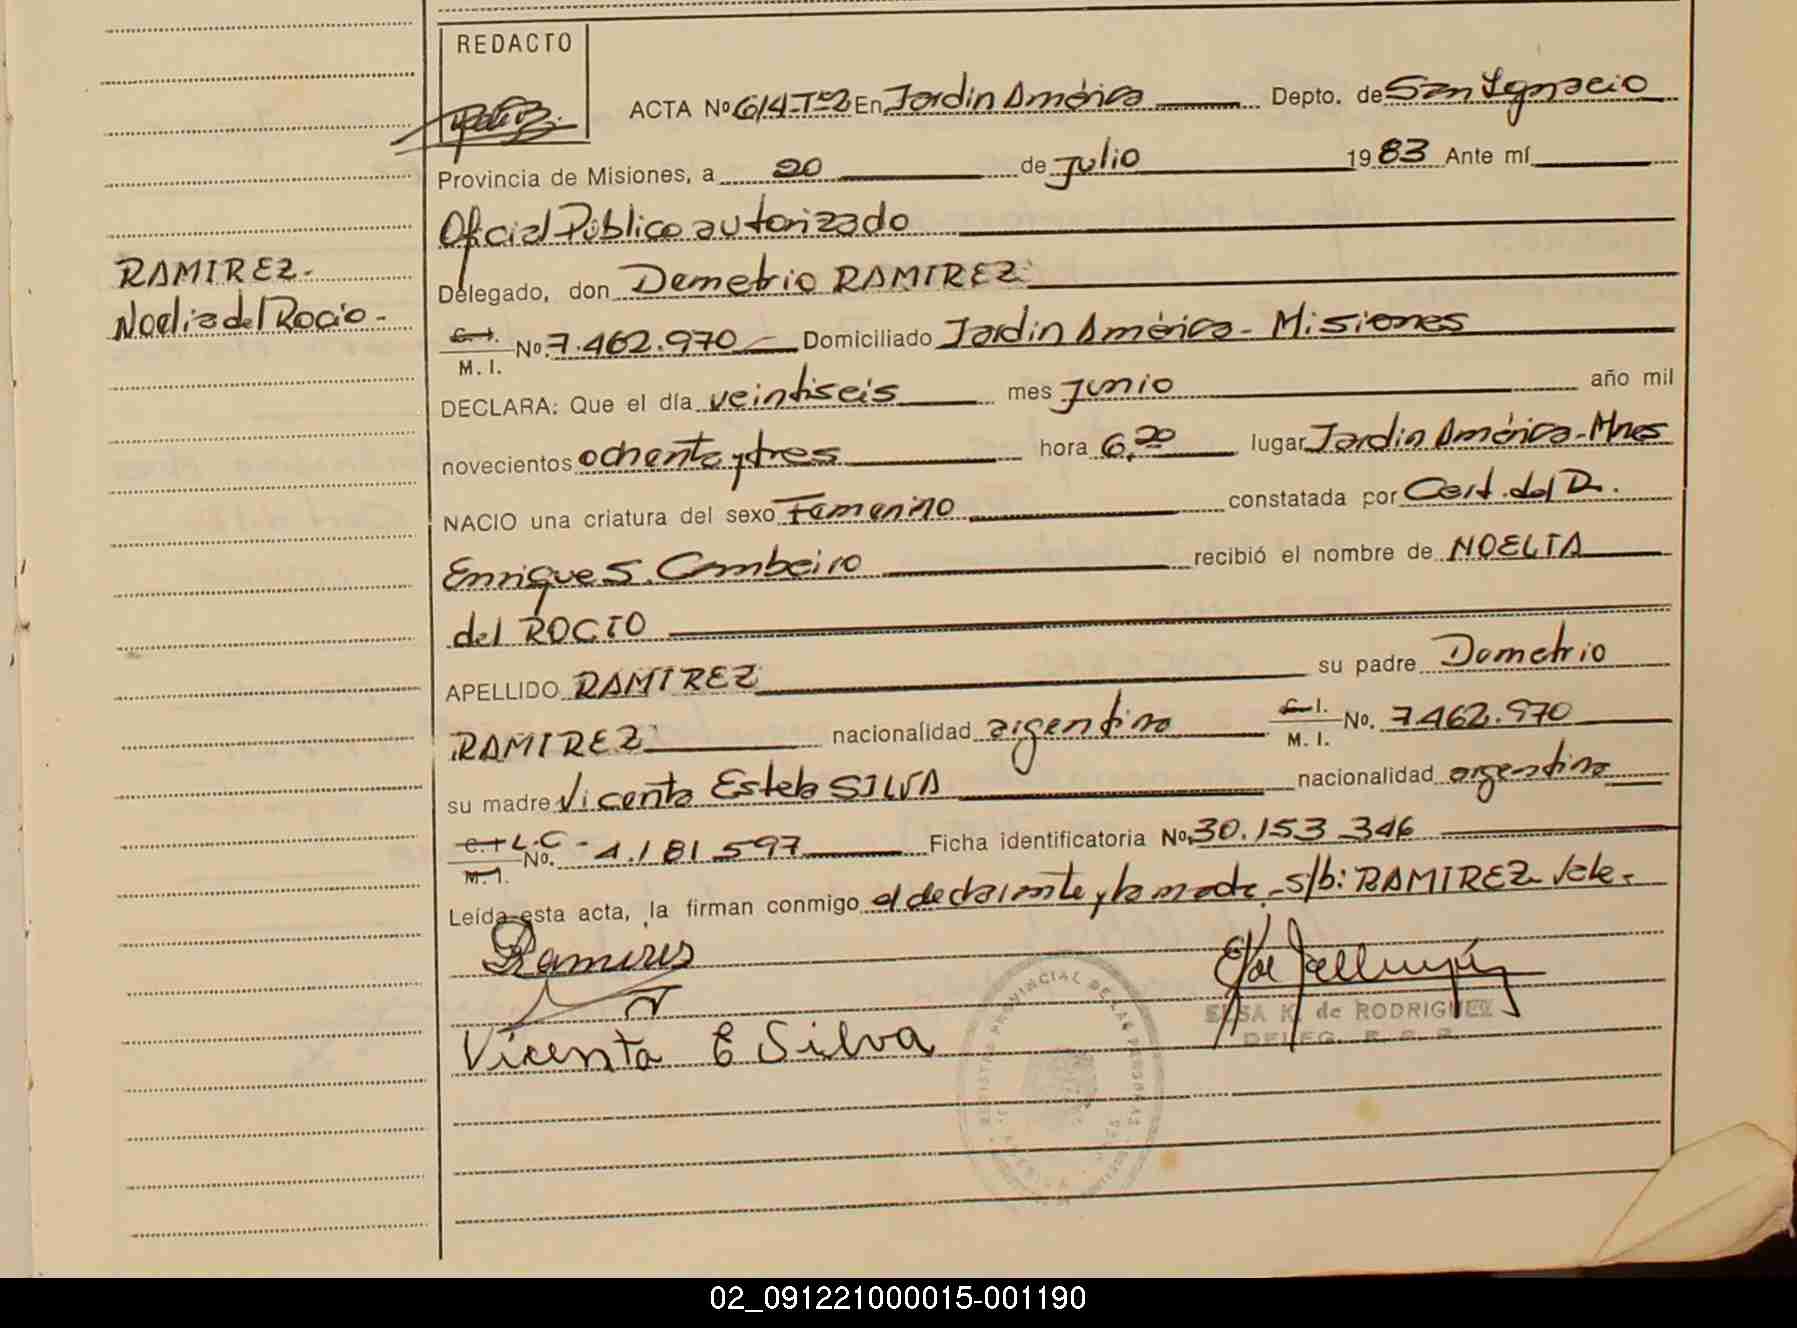 REDACTO
ACTA Nº 614-Tº2 En Jardin América Depto. de San Ignacio
Provincia de Misiones, a 20 de Julio 1983 Ante mí
Oficial Público autorizado
RAMIREZ-
Delegado, don Demetrio RAMIREZ
Noelia del Rocio-
C.I. M.I. No. 7.462.970 Domiciliado Jardin América - Misiones
DECLARA: Que el día veintiseis mes Junio año mil
novecientos ochenta y tres hora 6,20 lugar Jardin América-Mnes
NACIO una criatura del sexo Femenino constatada por Cert. del Dr.
Enrique S. Cambeiro recibió el nombre de NOELIA
del ROCIO
APELLIDO RAMIREZ su padre Demetrio
RAMIREZ nacionalidad argentina C.I. M.I. No. 7.462.970
su madre Vicenta Estela SILVA nacionalidad argentina
C.I. L.C- M.I. No. 4.181.597 Ficha identificatoria No. 30.153.346
Leída esta acta, la firman conmigo el declarante y la madre.-s/b: RAMIREZ-Vale-
Ramires
Vicenta E Silva
ELSA K. de RODRIGUEZ
DELEG. R. P. P.
REGISTRO PROVINCIAL DE LAS PERSONAS
02_091221000015-001190